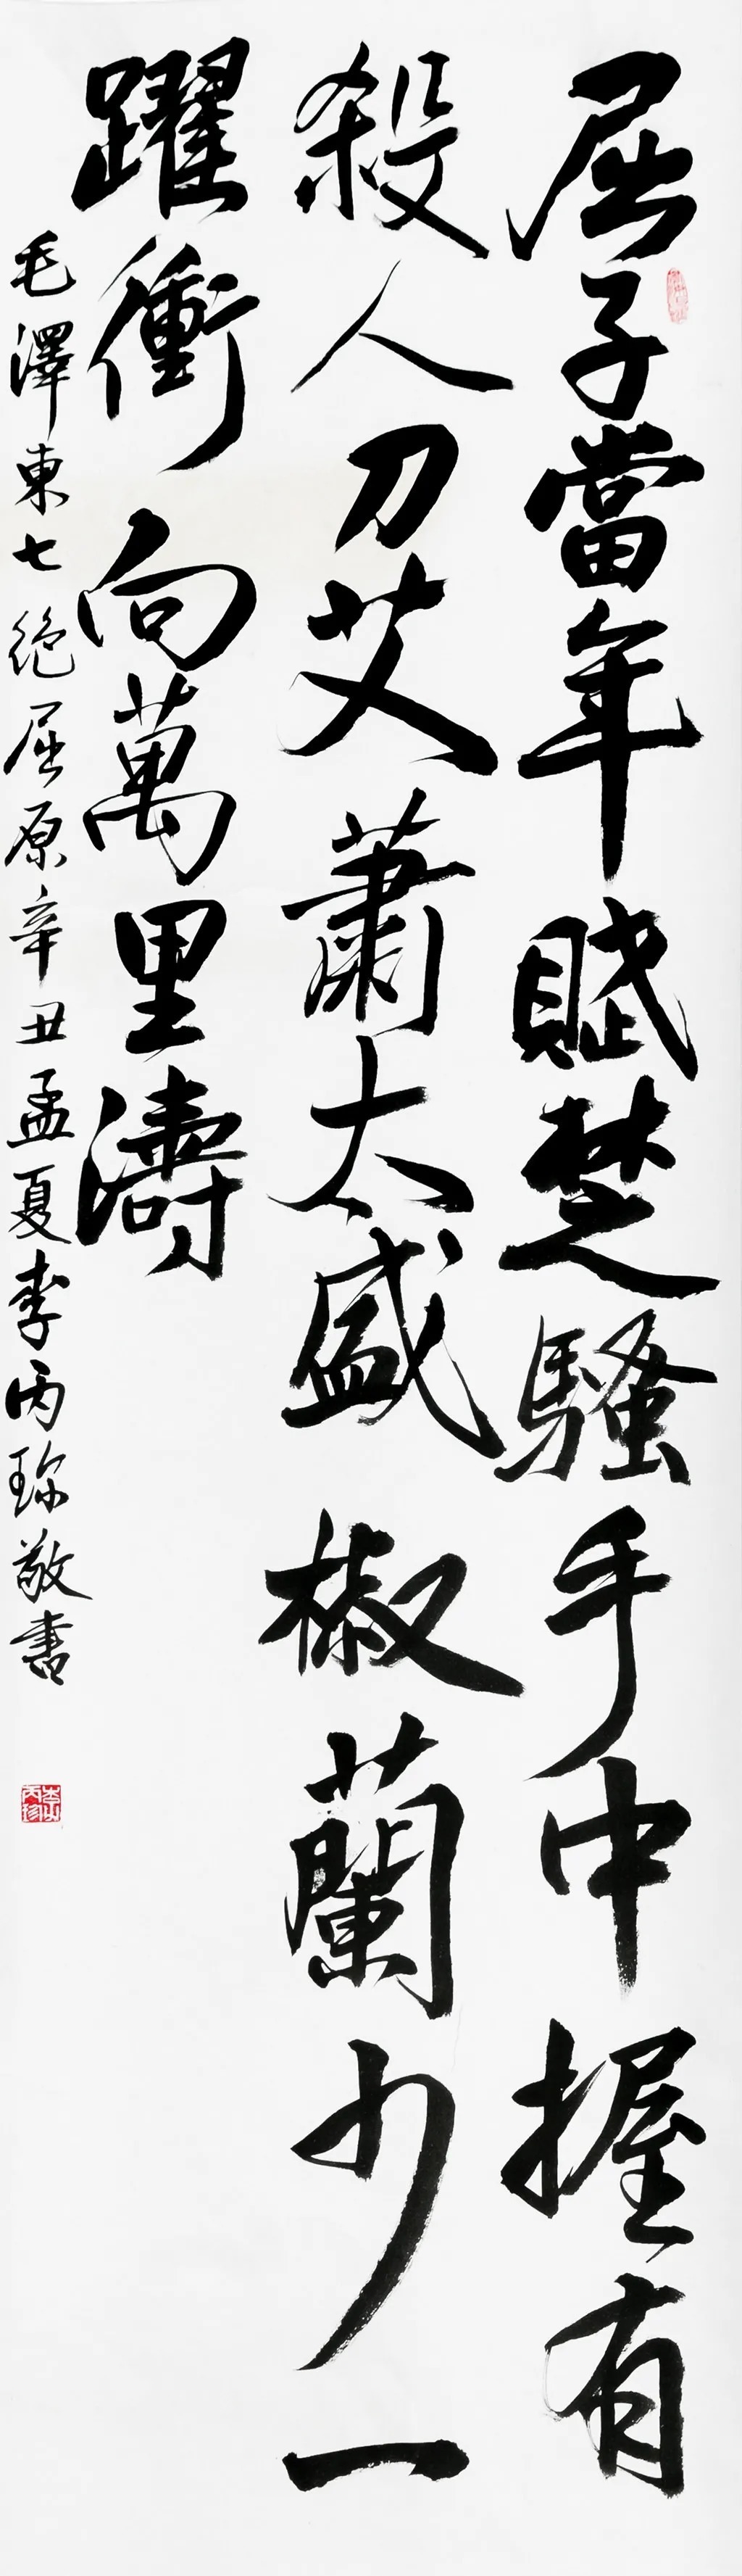 屈子當年賦楚騷手中握有
殺人刀艾蕭太盛椒蘭少一
躍衝向萬里濤
毛澤東七絕屈原辛丑孟夏李丙珎敬書